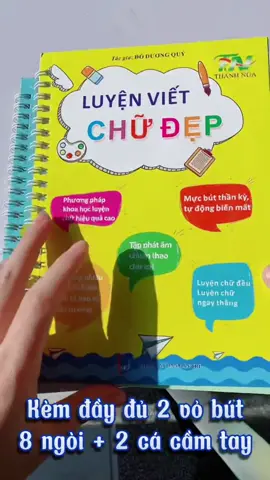 Tác giả: ĐỖ DƯƠNG QUÝ
THANH NGA
LUYỆN VIẾT
CHỮ ĐẸP
Phương pháp
khoa học luyện
chữ hiệu quả cao
Mực bút thần kỳ,
tự động biến mất
Tập phát âm
Luyện chữ đều
Luyện chữ
ngay thẳng
Kèm đầy đủ 2 vỏ bút
8 ngòi + 2 cá cầm tay